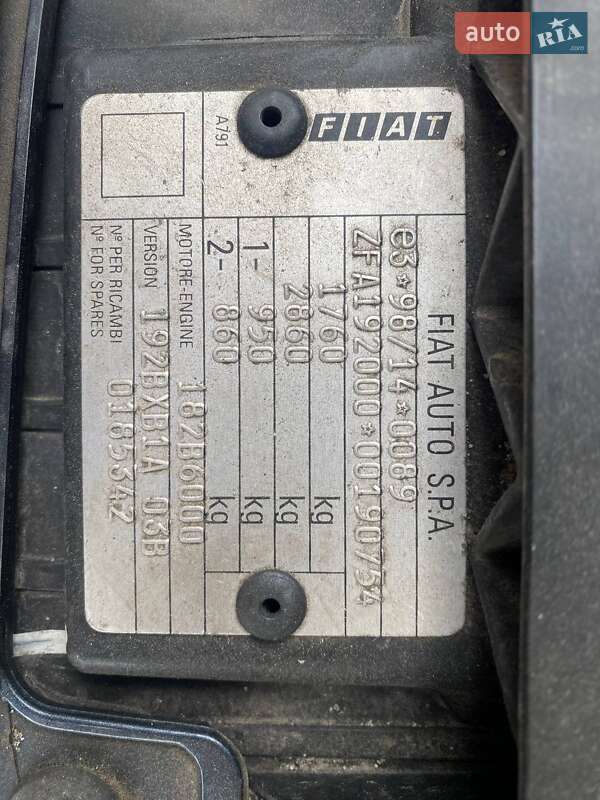 auto RIA.com
FIAT
A791
FIAT AUTO S.P.A.
e3*98/14*0089
ZFA192000*00190754
1760 kg
2860 kg
1- 950 kg
2- 860 kg
MOTORE-ENGINE 182B6000
VERSION 192BXB1A 03B
N° PER RICAMBI
N° FOR SPARES 0185342